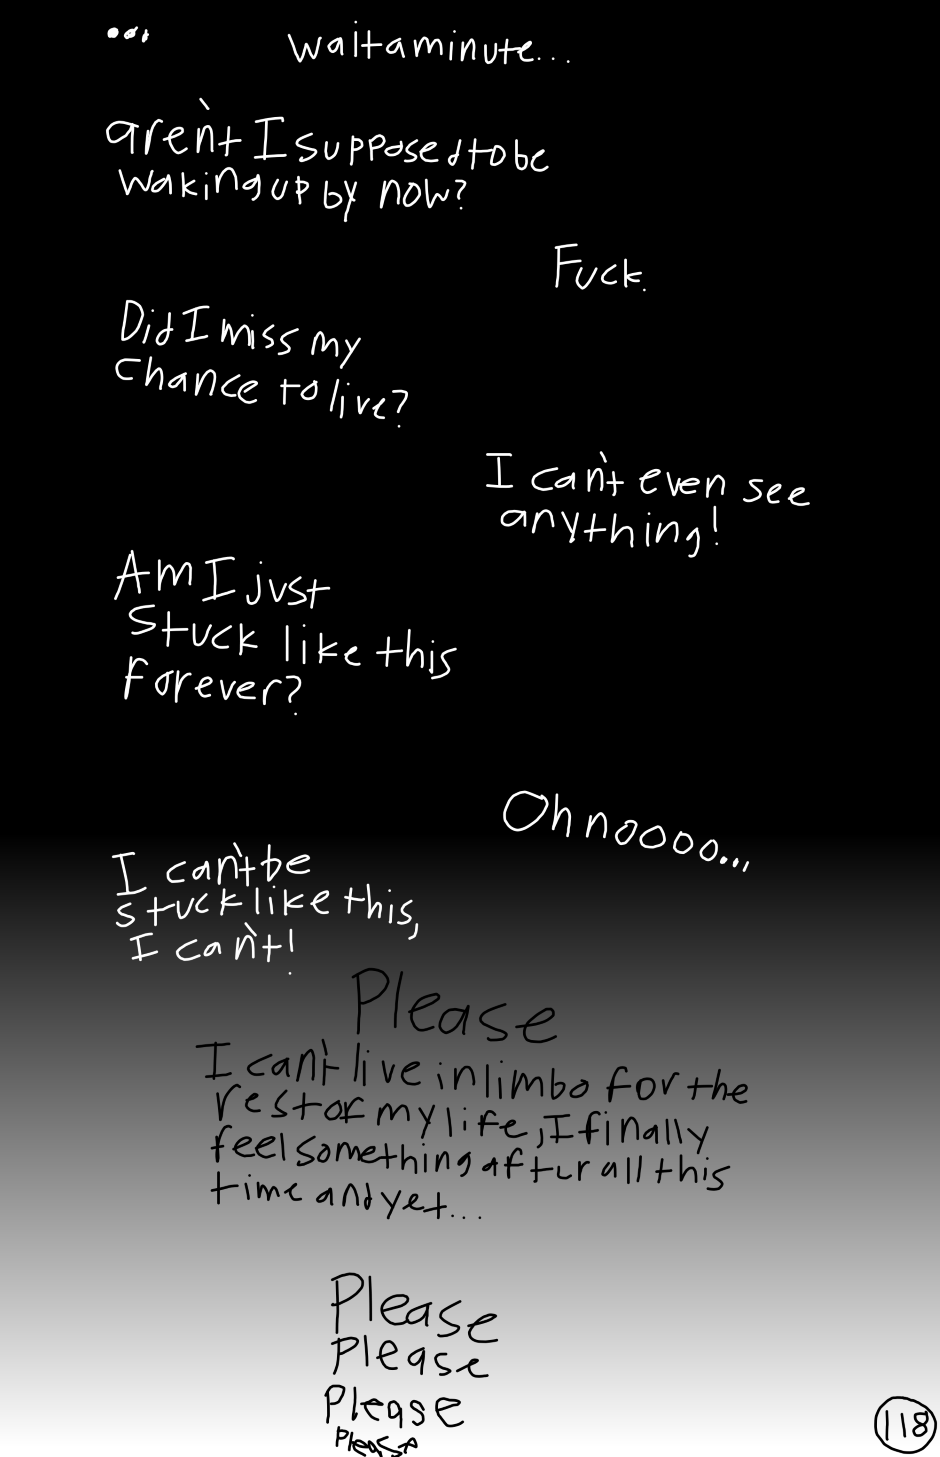 ...
waitaminute...
aren't I supposed to be
waking up by now?
Fuck.
Did I miss my
chance to live?
I can't even see
anything!
Am I just
stuck like this
forever?
Oh noooo...
I can't be
stuck like this,
I can't!
Please
I can't live in limbo for the
rest of my life, I finally
feel something aftur all this
time and yet...
Please
Please
Please
Please
118